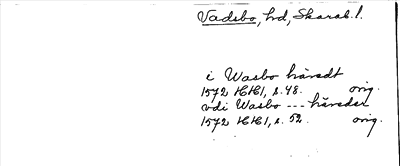 Vadsbo, hd, Skarab. l.
i Wasbo häredt
1572 HHI, s. 48. orig.
vdi Wasbo --- häreder
1572 HHI, s. 52. orig.